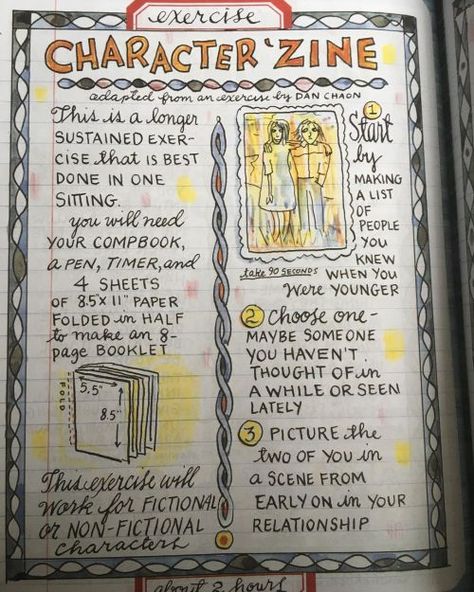 exercise
CHARACTER 'ZINE
adapted from an exercise by DAN CHAON
This is a longer
SUSTAINED EXER-
CISE that is BEST
DONE IN ONE
SITTING.
you will need
YOUR COMPBOOK,
a PEN, TIMER, and
4 SHEETS
OF 8.5 X 11" PAPER
FOLDED in HALF
to make an 8-
page BOOKLET
FOLD
5.5"
8.5"
This exercise will
work for FICTIONAL
or NON-FICTIONAL
characters
1
Start
by
MAKING
A LIST
OF
PEOPLE
YOU
KNEW
take 90 SECONDS WHEN YOU
Were YOUNGER
2 Choose one-
MAYBE SOMEONE
YOU HAVEN'T
THOUGHT OF in
A WHILE OR SEEN
LATELY
3 PICTURE the
two OF YOU in
a SCENE FROM
EARLY ON in YOUR
RELATIONSHIP
about 2 hours